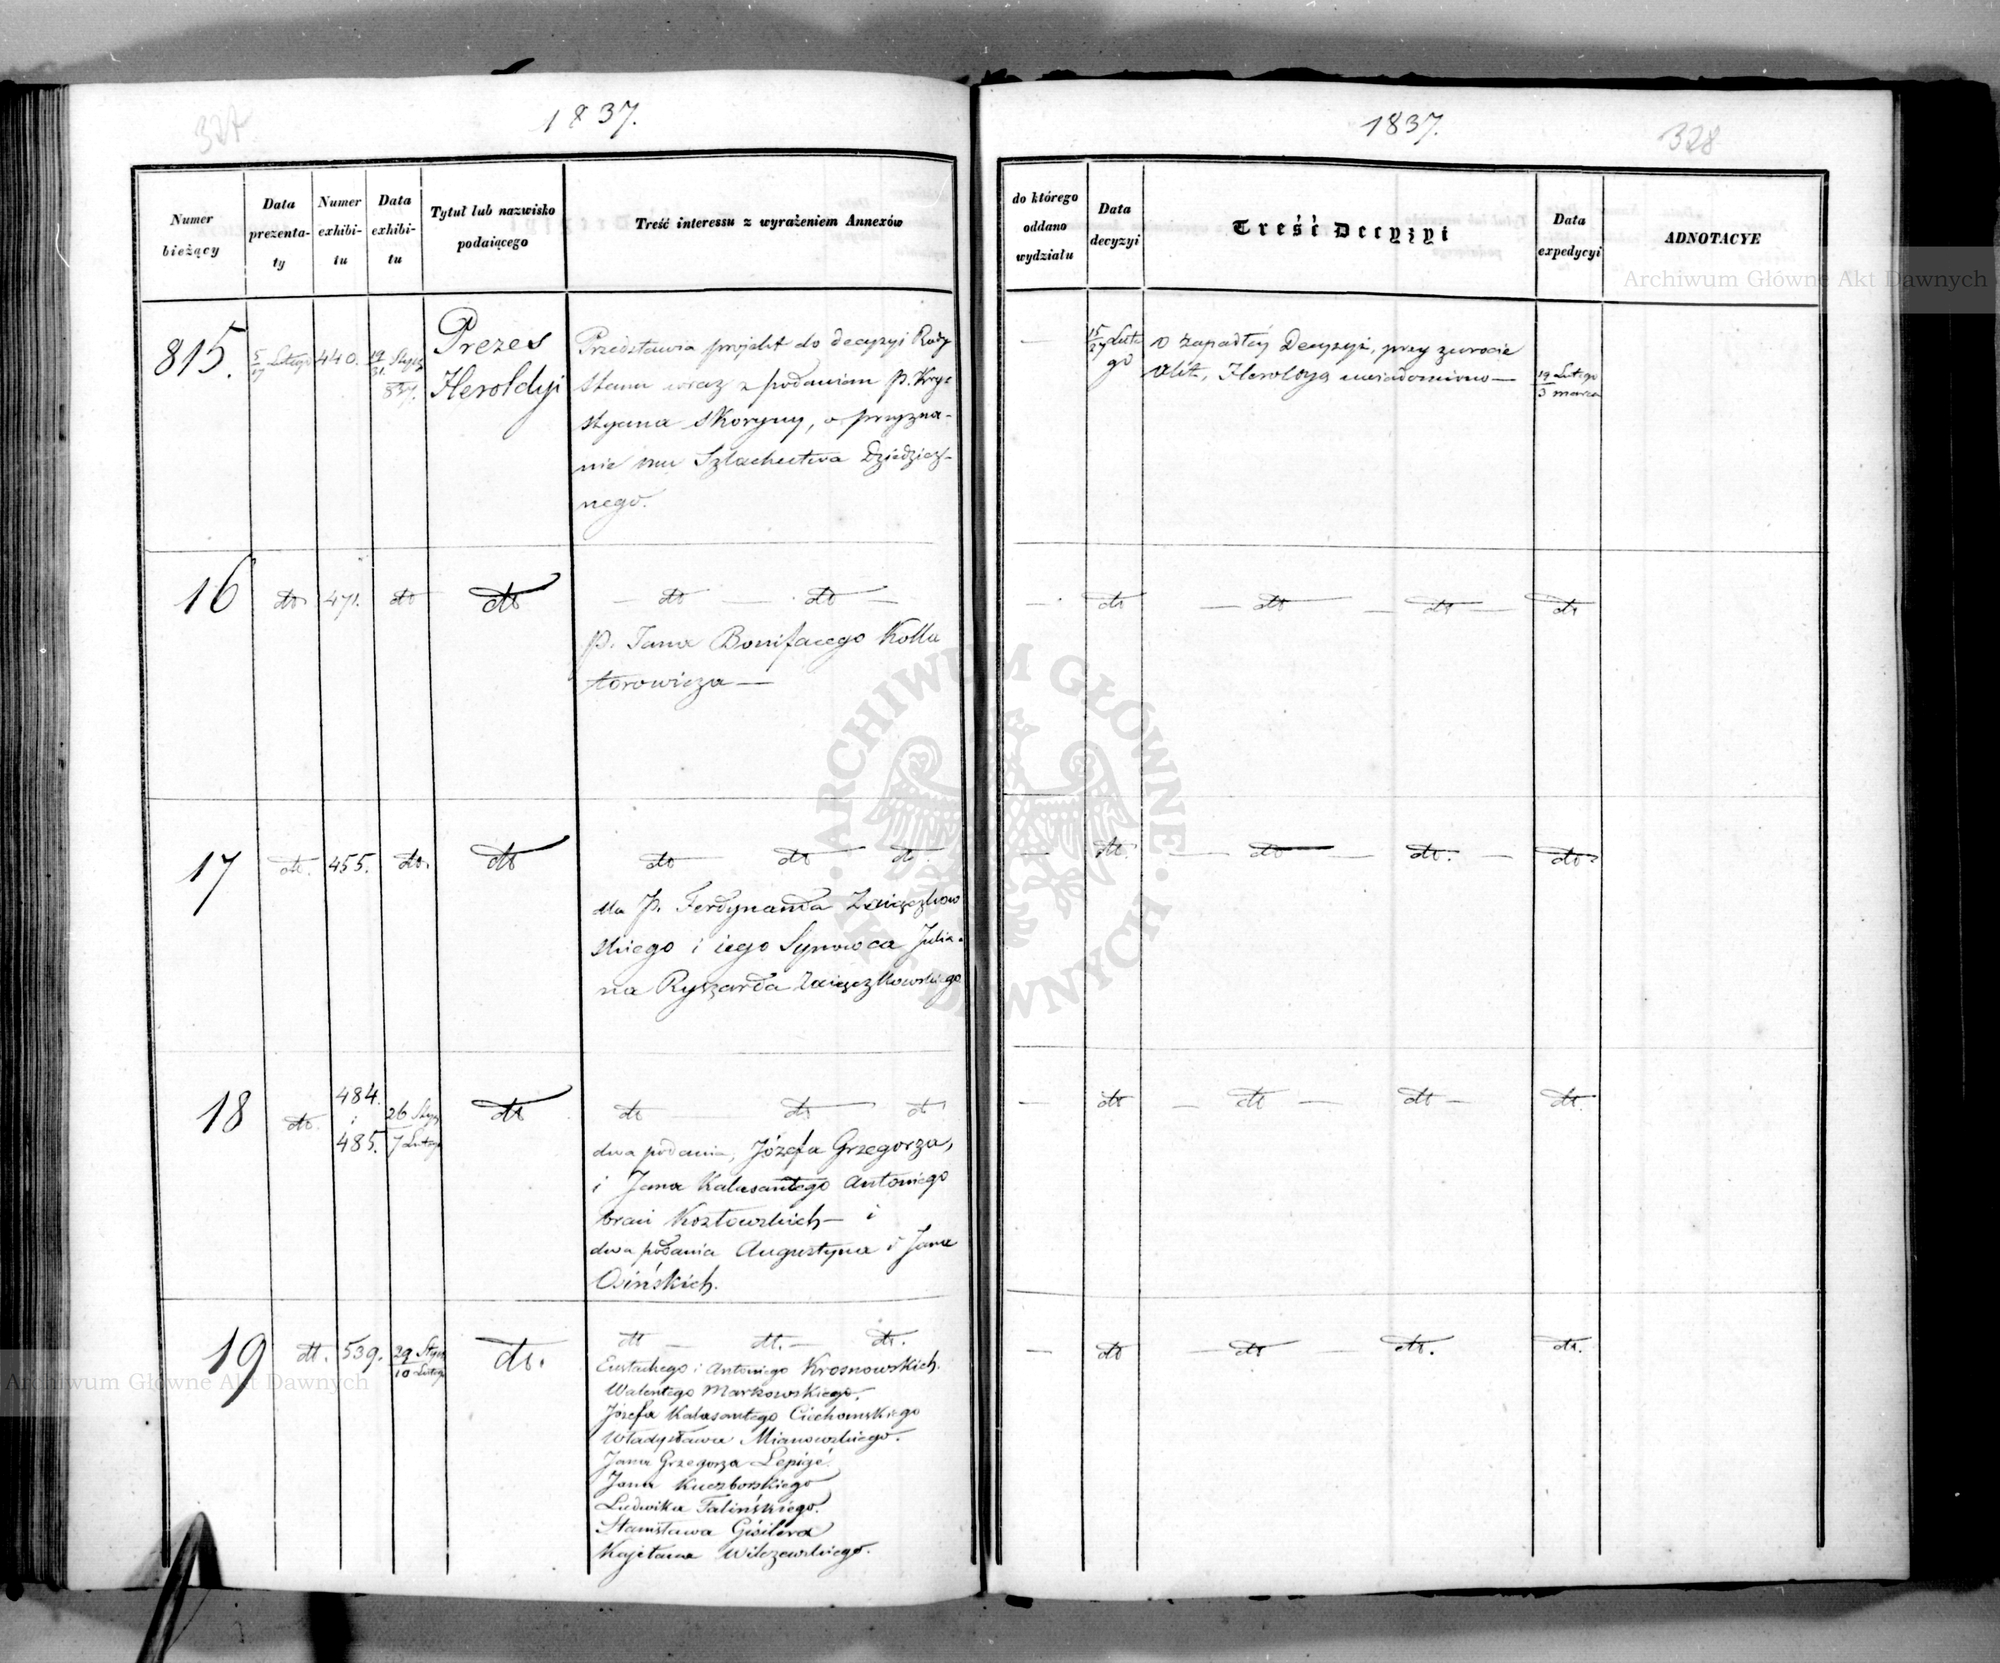 327
1837.
Numer bieżący
Data prezentaty
Numer exhibitu
Data exhibitu
Tytuł lub nazwisko podaiącego
Treść interessu z wyrażeniem Annexów
815.
5/17 Lutego
440.
19/31 Stycz 837.
Prezes
Heroldyi
Przedstawia projekt do decyzyi Rady
Stanu wraz z podaniem P. Kry-
styana Skoryny, o przyzna-
nie mu Szlachectwa Dziedzicz-
nego.
16
dto
471.
dto
dto
— dto — dto —
P. Jana Bonifacego Kolla
torowicza —
17
dto.
455.
dto.
dto
dto dto dto.
dla P. Ferdynanda
skiego i iego Synowca Julia-
na Ryszarda
18
dto.
484.
i
485.
26 Stycz
7 Lutego
dto
dto dto dto
dwa podania, Józefa Grzegorza,
i Jana Kalasantego Antoniego
braci Kozłowskich — i
dwa podania Augustyna i Jana
Osińskich.
19
dto.
539.
29 Stycz
10 Lutego
dto.
dto — dto. — dto.
Eustachego i Antoniego Krosnowskich.
Walentego Markowskiego.
Józefa Kalasantego Ciechomskiego
Władysława Mianowskiego.
Jana Grzegorza Lepigé.
Jana Kuczborskiego
Ludwika Falińskiego.
Stanisława
Kajetana Wilczewskiego.
1837.
328
do którego oddano wydziału
Data decyzyi
Treść Decyzyi
Data expedycyi
ADNOTACYE
—
15/27 Lute
go
O zapadłéj Decyzyi, przy zwrocie
alleg., Heroldyą uwiadomiono —
19 Lutego
3 marca
— dto — dto — dto — dto
— dto. — dto — dto. — dto
— dto — dto — dto — dto.
— dto — dto — dto. dto.
Archiwum Główne Akt Dawnych
ARCHIWUM GŁÓWNE AKT DAWNYCH
Archiwum Główne Akt Dawnych